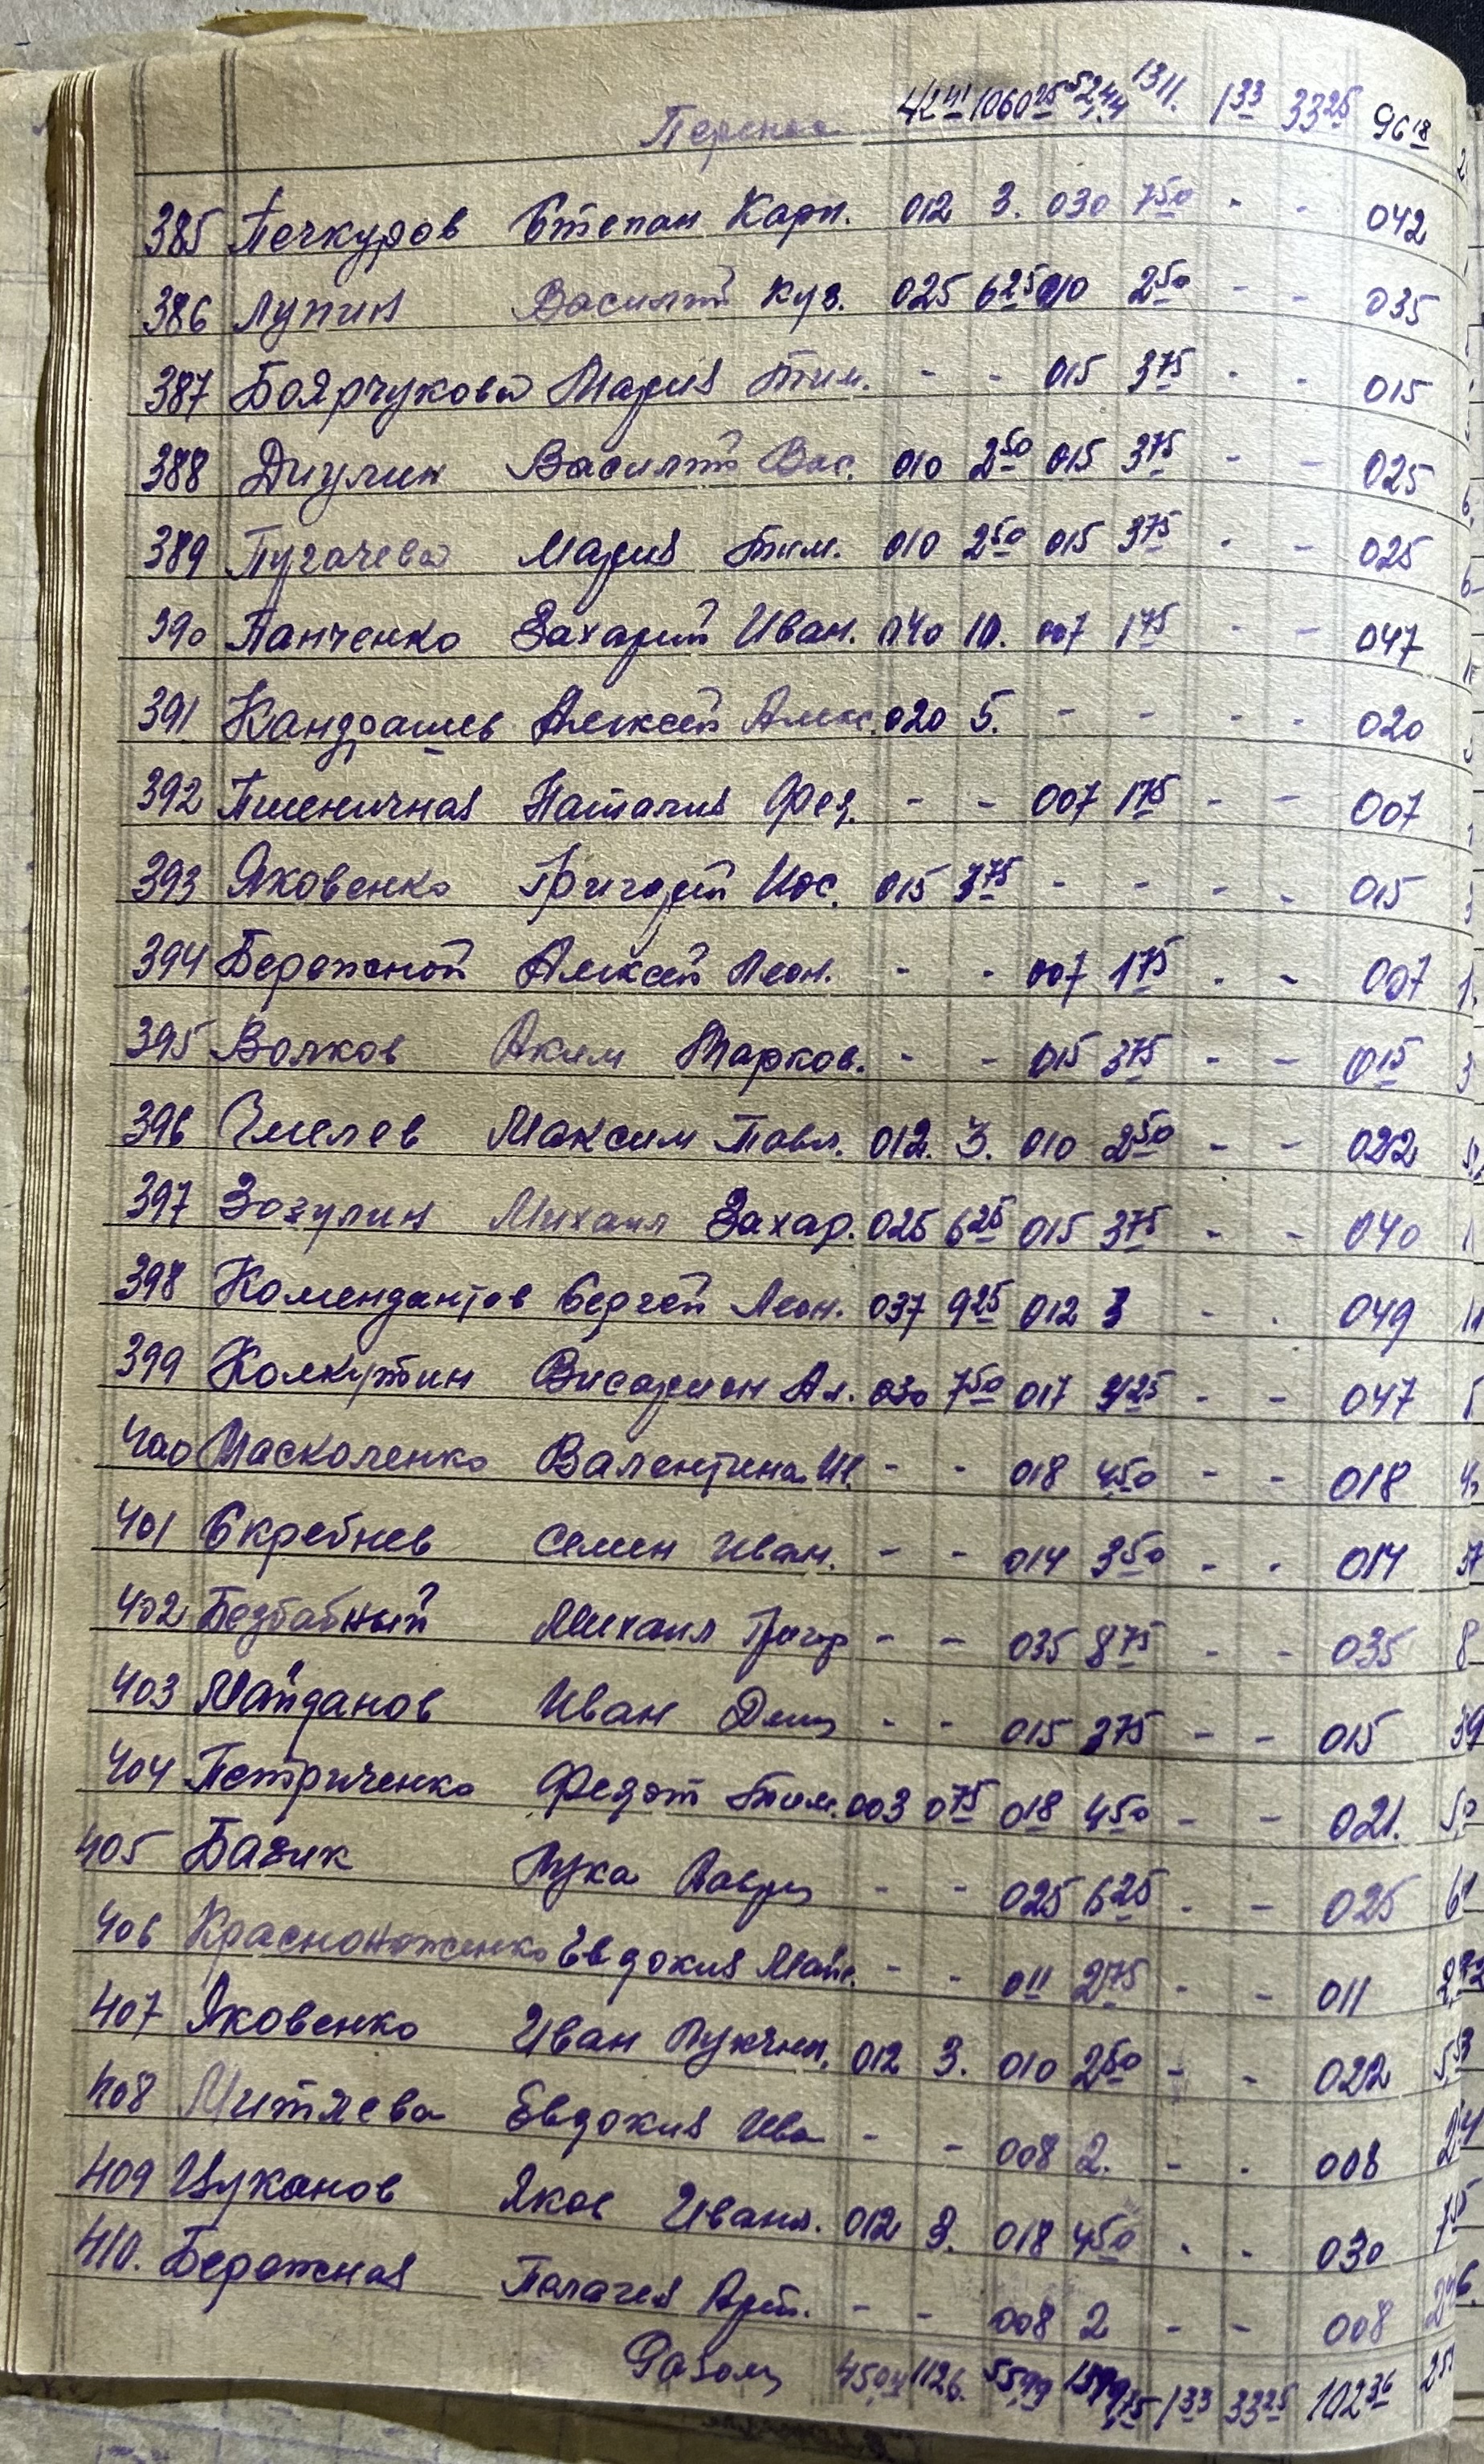 Перенос 42 41 1060 25 52,44 1311. 1 33 33 25 96 18
385 Печкуров Степан Карп. 012 3. 030 7 50 - - 042
386 Лупин Василий Куз. 025 6 25 010 2 50 - - 035
387 Боярчукова Мария Тим. - - 015 3 75 - - 015
388 Диулин Василий Вас. 010 2 50 015 3 75 - - 025
389 Пугачева Мария Тим. 010 2 50 015 3 75 - - 025
390 Панченко Захарий Иван. 040 10. 007 1 75 - - 047
391 Кандрашев Алексей Алекс. 020 5. - - - - 020
392 Пшеничная Наталия Фед. - - 007 1 75 - - 007
393 Яковенко Григорий Иос. 015 3 75 - - - - 015
394 Бережной Алексей Леон. - - 007 1 75 - - 007
395 Волков Аким Марков. - - 015 3 75 - - 015
396 Чмелев Максим Павл. 012. 3. 010 2 50 - - 022
397 Зозулин Михаил Захар. 025 6 25 015 3 75 - - 040
398 Комендантов Сергей Леон. 037 9 25 012 3 - - 049
399 Колкутин Висарион Ал. 030 7 50 017 4 25 - - 047
400 Масколенко Валентина И. - - 018 4 50 - - 018
401 Скребнев Семен Иван. - - 014 3 50 - - 014
402 Безбабный Михаил Григор - - 035 8 75 - - 035
403 Майданов Иван Дем - - 015 3 75 - - 015
404 Петриченко Федот Тим. 003 0 75 018 4 50 - - 021.
405 Базик Лука Лавр - - 025 6 25 - - 025
406 Красноноженко Евдокия Матв. - - 011 2 75 - - 011
407 Яковенко Иван Лукич 012 3. 010 2 50 - - 022
408 Митяева Евдокия Ива - - 008 2. - - 008
409 Цуканов Яков Иван. 012 3. 018 4 50 - - 030
410. Бережная Палагея Арт. - - 008 2 - - 008
Разом 1126. 1 33 33 25 102 36